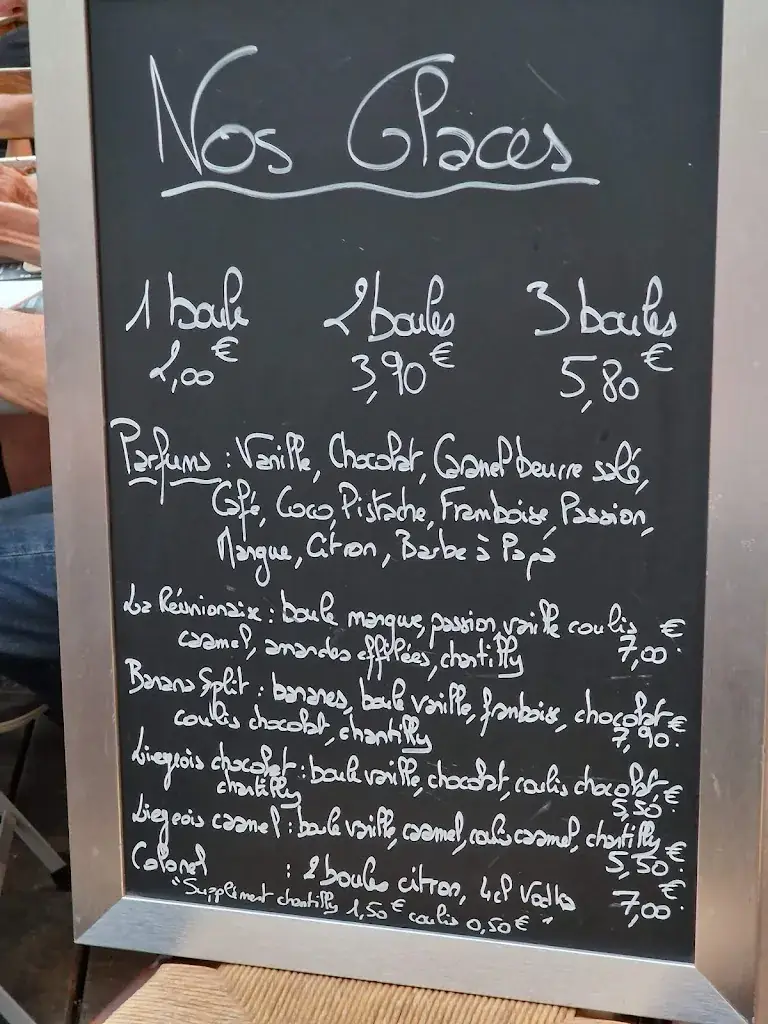 Nos Glaces
1 boule 2 boules 3 boules
2,00€ 3,90€ 5,80€
Parfums : Vanille, Chocolat, Caramel beurre salé,
Café, Coco, Pistache, Framboise, Passion,
Mangue, Citron, Barbe à Papa
La Réunionaix : boule mangue, passion, vanille coulis
caramel, amandes effilées, chantilly 7,00€
Banana Split : bananes, boule vanille, framboise, chocolat
coulis chocolat, chantilly 7,90€
Liegeois chocolat : boule vanille, chocolat, coulis chocolat,
chantilly 5,50€
Liegeois caramel : boule vanille, caramel, coulis caramel, chantilly
5,50€
Colonel : 2 boules citron, 4cl Vodka 7,00€
"Supplément chantilly 1,50€ coulis 0,50€"